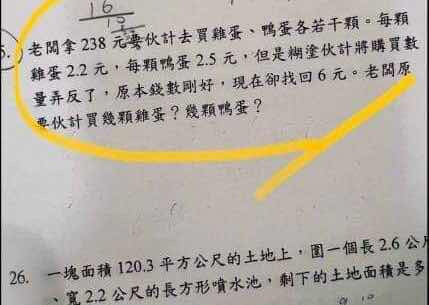 16
5. 老闆拿 238 元要伙計去買雞蛋、鴨蛋各若干顆。每顆
雞蛋 2.2 元,每顆鴨蛋 2.5 元,但是糊塗伙計將購買數
量弄反了,原本錢數剛好,現在卻找回 6 元。老闆原
要伙計買幾顆雞蛋?幾顆鴨蛋?
26. 一塊面積 120.3 平方公尺的土地上,圍一個長 2.6 公
、寬 2.2 公尺的長方形噴水池,剩下的土地面積是多